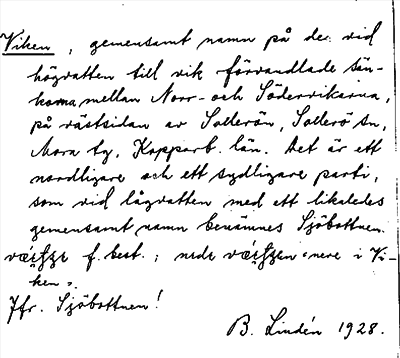 Viken, gemensamt namn på de vid
högvatten till vik förvandlade sän-
korna mellan Norr- och Södervikarna,
på västsidan av Sollerön, Sollerö sn,
Mora tg, Kopparb. län. Det är ett
nordligare och ett sydligare parti,
som vid lågvatten med ett likaledes
gemensamt namn benämnes Sjöbottnen.
f. best.; nede "nere i Vi-
ken".
Jfr. Sjöbottnen!
B. Lindén 1928.